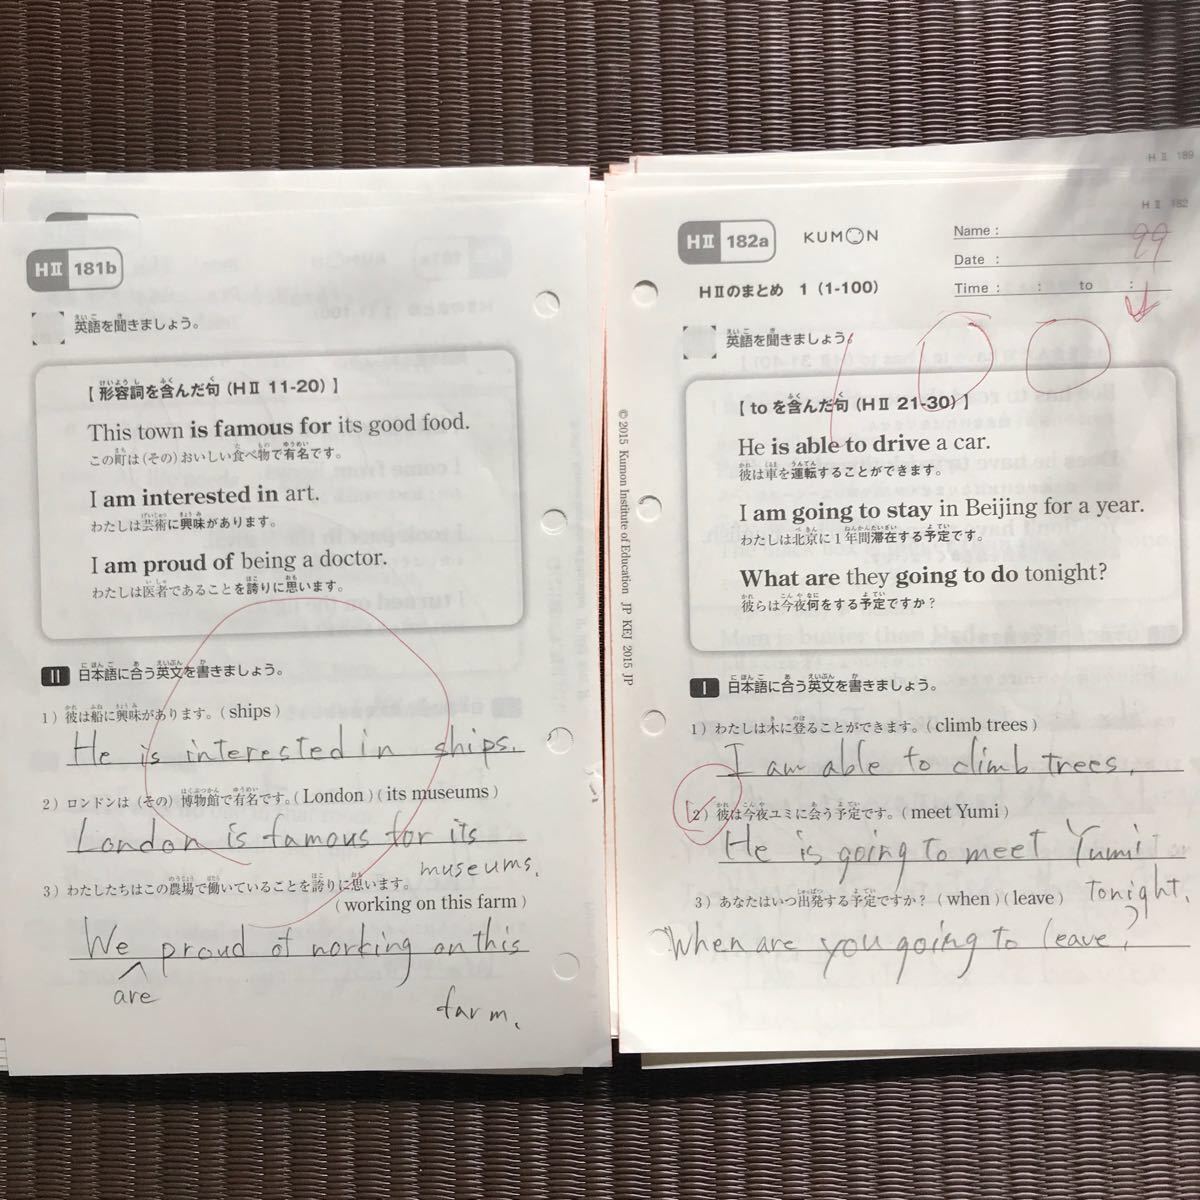 HⅡ 181b
英語を聞きましょう。
【 形容詞を含んだ句 (HⅡ 11-20) 】
This town is famous for its good food.
この町は(その)おいしい食べ物で有名です。
I am interested in art.
わたしは芸術に興味があります。
I am proud of being a doctor.
わたしは医者であることを誇りに思います。
Ⅱ 日本語に合う英文を書きましょう。
1) 彼は船に興味があります。(ships)
He is interested in ships.
2) ロンドンは(その)博物館で有名です。(London)(its museums)
London is famous for its
museums.
3) わたしたちはこの農場で働いていることを誇りに思います。
(working on this farm)
We proud of working on this
are
farm.
HⅡ 189
HⅡ 182
HⅡ 182a
KUMON
Name :
99
Date :
Time : : to :
HⅡのまとめ 1 (1-100)
英語を聞きましょう。
【 to を含んだ句 (HⅡ 21-30) 】
He is able to drive a car.
彼は車を運転することができます。
I am going to stay in Beijing for a year.
わたしは北京に1年間滞在する予定です。
What are they going to do tonight?
彼らは今夜何をする予定ですか?
© 2015 Kumon Institute of Education JP KEJ 2015 JP
Ⅰ 日本語に合う英文を書きましょう。
1) わたしは木に登ることができます。(climb trees)
I am able to climb trees.
2) 彼は今夜ユミに会う予定です。(meet Yumi)
He is going to meet Yumi
tonight.
3) あなたはいつ出発する予定ですか?(when)(leave)
When are you going to leave?